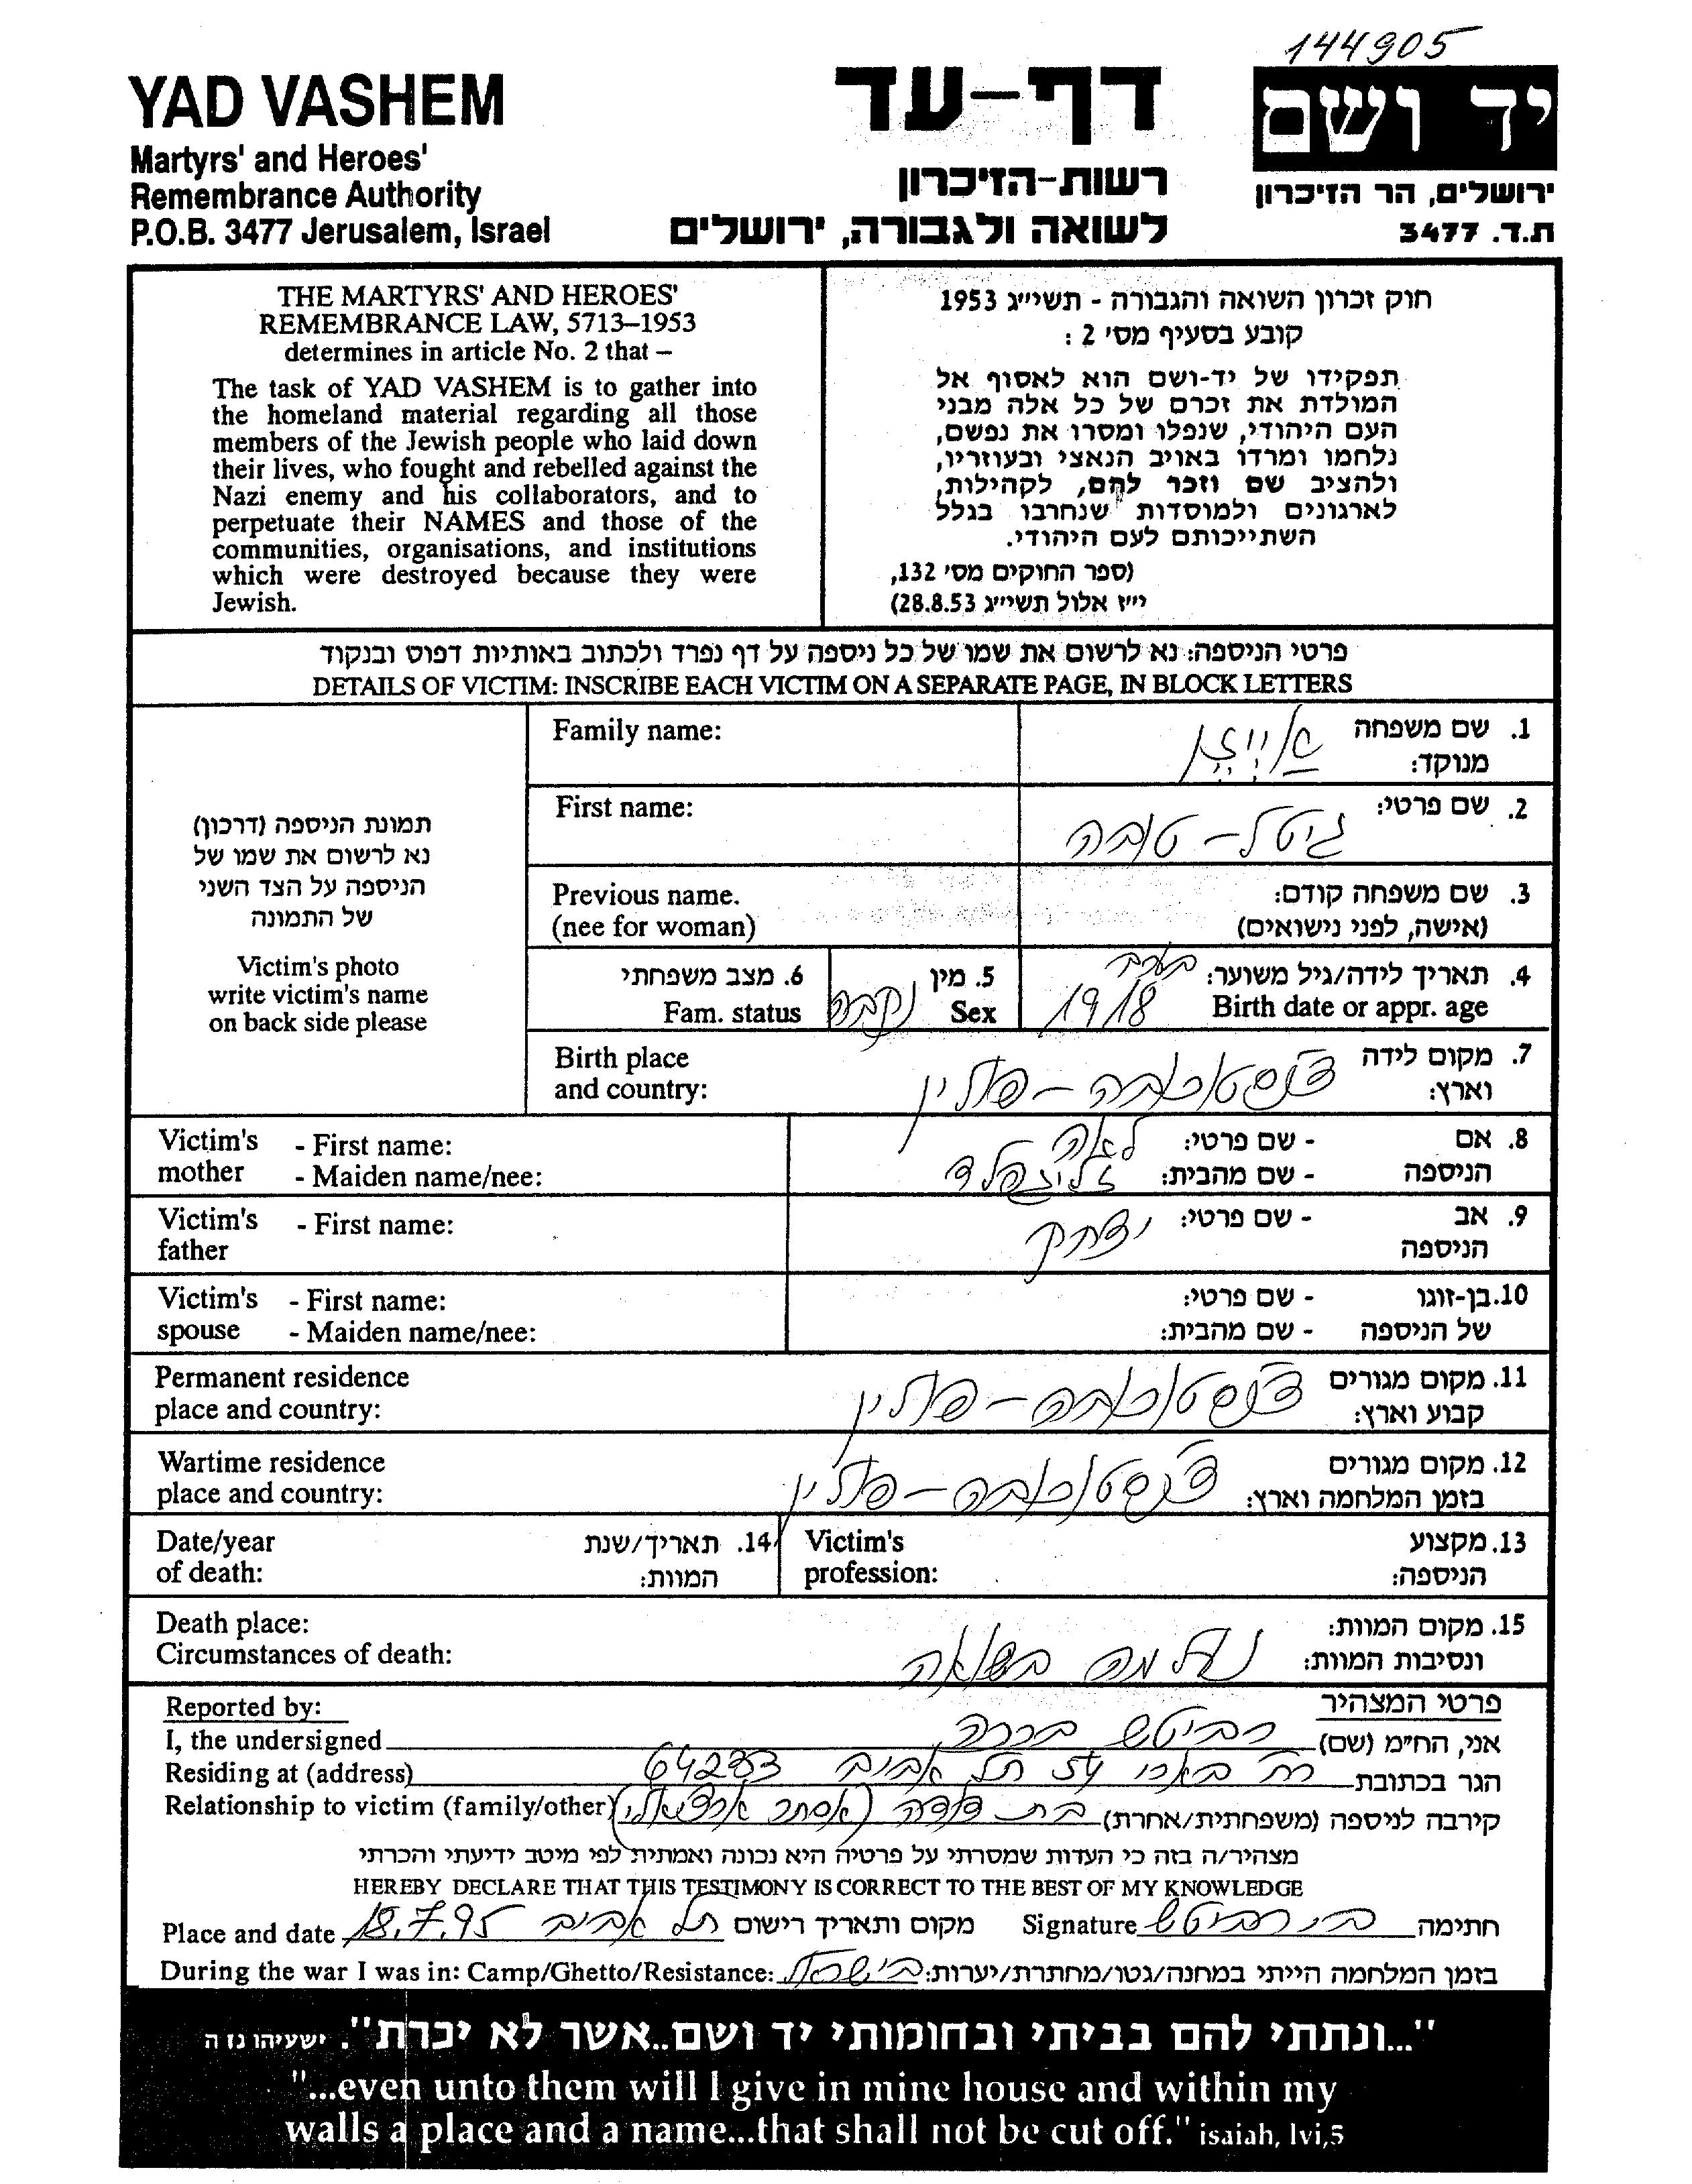 144905
YAD VASHEM
Martyrs' and Heroes'
Remembrance Authority
P.O.B. 3477 Jerusalem, Israel
דף-עד
רשות-הזיכרון
לשואה ולגבורה, ירושלים
יד ושם
ירושלים, הר הזיכרון
ת.ד. 3477
THE MARTYRS' AND HEROES'
REMEMBRANCE LAW, 5713–1953
determines in article No. 2 that –
The task of YAD VASHEM is to gather into
the homeland material regarding all those
members of the Jewish people who laid down
their lives, who fought and rebelled against the
Nazi enemy and his collaborators, and to
perpetuate their NAMES and those of the
communities, organisations, and institutions
which were destroyed because they were
Jewish.
חוק זכרון השואה והגבורה - תשי"ג 1953
קובע בסעיף מס' 2 :
תפקידו של יד-ושם הוא לאסוף אל
המולדת את זכרם של כל אלה מבני
העם היהודי, שנפלו ומסרו את נפשם,
נלחמו ומרדו באויב הנאצי ובעוזריו,
ולהציב שם וזכר להם, לקהילות,
לארגונים ולמוסדות שנחרבו בגלל
השתייכותם לעם היהודי.
(ספר החוקים מס' 132,
י"ז אלול תשי"ג 28.8.53)
פרטי הניספה: נא לרשום את שמו של כל ניספה על דף נפרד ולכתוב באותיות דפוס ובנקוד
DETAILS OF VICTIM: INSCRIBE EACH VICTIM ON A SEPARATE PAGE, IN BLOCK LETTERS
תמונת הניספה (דרכון)
נא לרשום את שמו של
הניספה על הצד השני
של התמונה
Victim's photo
write victim's name
on back side please
Family name:
1. שם משפחה
מנוקד:
אייזן
First name:
2. שם פרטי:
גיטל - טובה
Previous name.
(nee for woman)
3. שם משפחה קודם:
(אישה, לפני נישואים)
6. מצב משפחתי
Fam. status
5. מין
Sex
נקבה
4. תאריך לידה/גיל משוער:
Birth date or appr. age
בערך
1918
Birth place
and country:
7. מקום לידה
וארץ:
צ'נסטוכובה - פולין
Victim's mother
- First name:
- Maiden name/nee:
8. אם הניספה
- שם פרטי: לאה
- שם מהבית: זליגפלד
Victim's father
- First name:
9. אב הניספה
- שם פרטי: יצחק
Victim's spouse
- First name:
- Maiden name/nee:
10. בן-זוגו של הניספה
- שם פרטי:
- שם מהבית:
Permanent residence
place and country:
11. מקום מגורים
קבוע וארץ:
צ'נסטוכובה - פולין
Wartime residence
place and country:
12. מקום מגורים
בזמן המלחמה וארץ:
צ'נסטוכובה - פולין
Date/year
of death:
14. תאריך/שנת
המוות:
Victim's
profession:
13. מקצוע
הניספה:
Death place:
Circumstances of death:
15. מקום המוות:
ונסיבות המוות:
נעלמה בשואה
Reported by:
פרטי המצהיר
I, the undersigned רביטש ברכה אני, הח"מ (שם)
Residing at (address) רח' בארי 54 תל אביב 64233 הגר בכתובת
Relationship to victim (family/other) בת דודה (אסתר ארציאלי) קירבה לניספה (משפחתית/אחרת)
מצהיר/ה בזה כי העדות שמסרתי על פרטיה היא נכונה ואמתית לפי מיטב ידיעתי והכרתי
HEREBY DECLARE THAT THIS TESTIMONY IS CORRECT TO THE BEST OF MY KNOWLEDGE
Place and date 18.7.95 תל אביב מקום ותאריך רישום Signature ב. רביטש חתימה
During the war I was in: Camp/Ghetto/Resistance: בישראל בזמן המלחמה הייתי במחנה/גטו/מחתרת/יערות:
"...ונתתי להם בביתי ובחומותי יד ושם..אשר לא יכרת". ישעיהו נו ה
"...even unto them will I give in mine house and within my
walls a place and a name...that shall not be cut off." isaiah, lvi,5